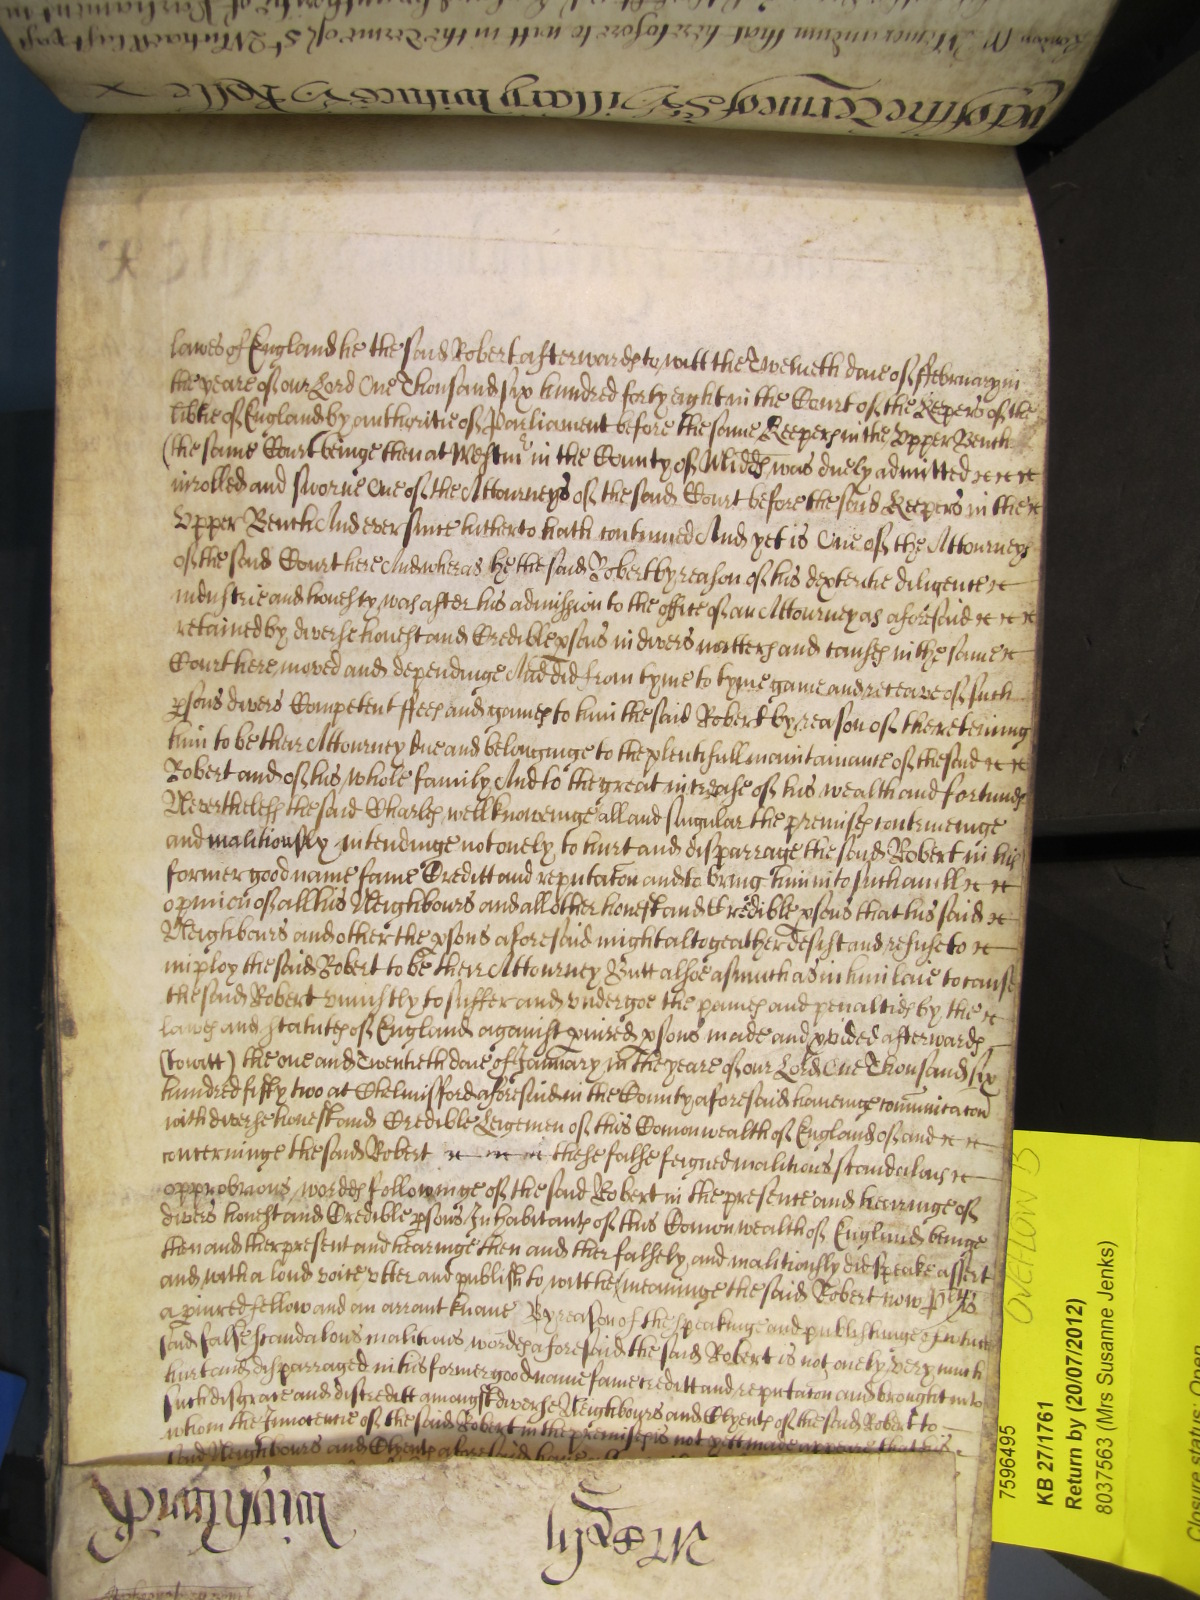 lawes of England he the said Robert afterwards to witt the Twelveth daie of ffebruary in
the yeare of our Lord One Thousand six hundred forty eight in the Court of the Kepers of the
libtie of England by authoritie of Parliament before the same Keepers in the Upper Bench
(the same Court beinge then at Westmr in the County of Midds) was duely admitted
inrolled and sworne One of the Attourneys of the said Court before the said Keepers in the
Upper Bench And ever since hitherto hath continued And yet is One of the Attourneys
of the said Court here And wheras he the said Robert by reason of his dexteritie diligence
industrie and honesty, was after his admission to the office of an Attourney as aforesaid
retained by diverse honest and Credible psons in divers matters and causes in the same
Court here moved and dependinge And did from tyme to tyme gaine and receave of such
psons divers Competent ffees and gaines to him the said Robert by reason of the reteining
him to be their Attourney due and belonginge to the plentifull maintainance of the said
Robert and of his whole family And to the great increase of his wealth and fortunes
Nevertheless the said Charles well knoweinge all and singular the premises contriveinge
and malitiously intendinge not onely to hurt and disparrage the said Robert in his
former good name fame Creditt and reputacon and to bring him into such an ill
opinion of all his Neighbours and all other honest and Credible psons that his said
Neighbours and other the psons aforesaid might altogeather desist and refuse to
imploy the said Robert to be their Attourney Butt alsoe as much as in him laie to cause
the said Robert uniustly to suffer and undergoe the paines and penalties by the
lawes and statutes of England against piured psons made and pvided afterwards
(to witt) the one and Twentieth daie of January in the yeare of our Lord One Thousand six
hundred fifty two at Chelmisford aforesaid in the County aforesaid haveinge comunicacon
with diverse honest and Credible Leigemen of this Comonwealth of England of and
concerninge the said Robert these false feigned malitious scandalous
opprobrious wordes followinge of the said Robert in the presence and hearinge of
divers honest and Credible psons Inhabitants of this Comonwealth of England beinge
then and ther present and hearinge then and ther falsely and malitiously did speake assert
and with a loud voice utter and publish to witt he (meaninge the said Robert now P) is
a piured fellow and an arrant knave By reason of the speakinge and publishinge of which
said false scandalous malitious wordes aforesaid the said Robert is not onely very much
hurt and disparraged in his former good name fame creditt and reputacon and brought into
such disgrace and discreditt amongst diverse Neighbours and Clyents of the said Robert to
whom the Innocencie of the said Robert in the premises is not yett made appeare that his
said Neighbours and Clyents aforesaid have
7596495
KB 27/1761
Return by (20/07/2012)
8037563 (Mrs Susanne Jenks)
Closure status: Open
OVERFLOW B